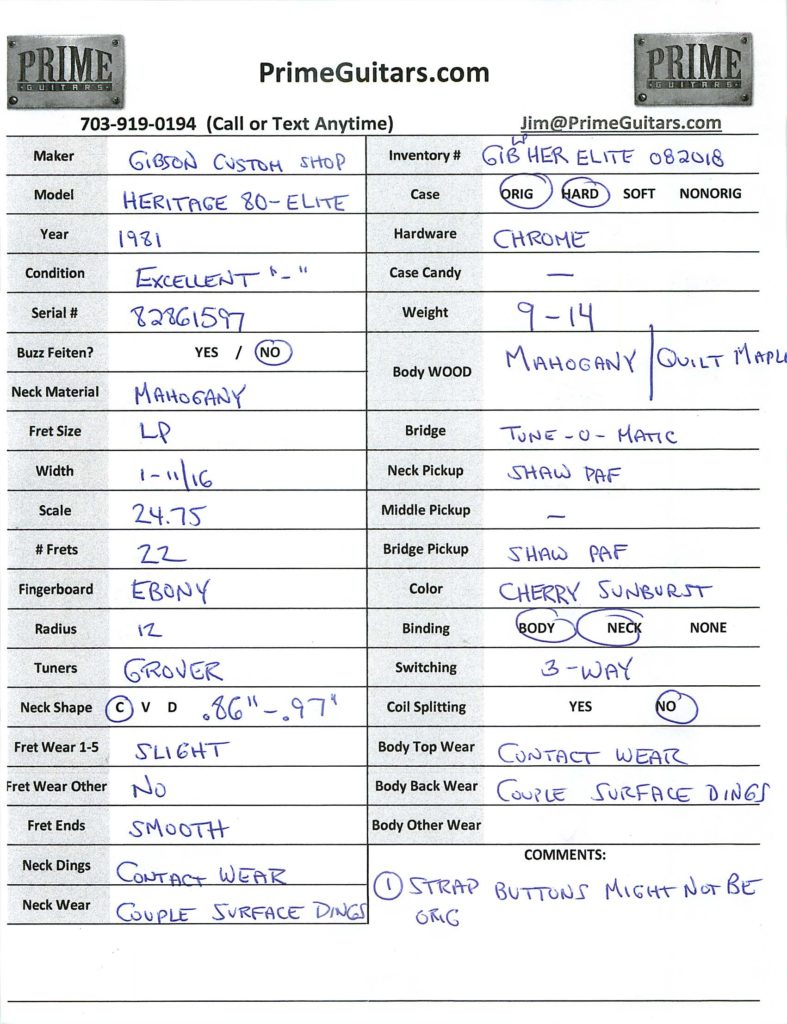 PRIME
GUITARS
PrimeGuitars.com
PRIME
GUITARS
703-919-0194 (Call or Text Anytime)
Jim@PrimeGuitars.com
Maker GIBSON CUSTOM SHOP
Model HERITAGE 80-ELITE
Year 1981
Condition EXCELLENT "-"
Serial # 82861597
Buzz Feiten? YES / NO
Neck Material MAHOGANY
Fret Size LP
Width 1-11/16
Scale 24.75
# Frets 22
Fingerboard EBONY
Radius 12
Tuners GROVER
Neck Shape C V D .86"-.97"
Fret Wear 1-5 SLIGHT
Fret Wear Other NO
Fret Ends SMOOTH
Neck Dings CONTACT WEAR
Neck Wear COUPLE SURFACE DINGS
Inventory # GIB LP HER ELITE 082018
Case ORIG HARD SOFT NONORIG
Hardware CHROME
Case Candy —
Weight 9-14
Body WOOD MAHOGANY | QUILT MAPLE
Bridge TUNE-O-MATIC
Neck Pickup SHAW PAF
Middle Pickup —
Bridge Pickup SHAW PAF
Color CHERRY SUNBURST
Binding BODY NECK NONE
Switching 3-WAY
Coil Splitting YES NO
Body Top Wear CONTACT WEAR
Body Back Wear COUPLE SURFACE DINGS
Body Other Wear
COMMENTS:
1 STRAP BUTTONS MIGHT NOT BE
ORIG